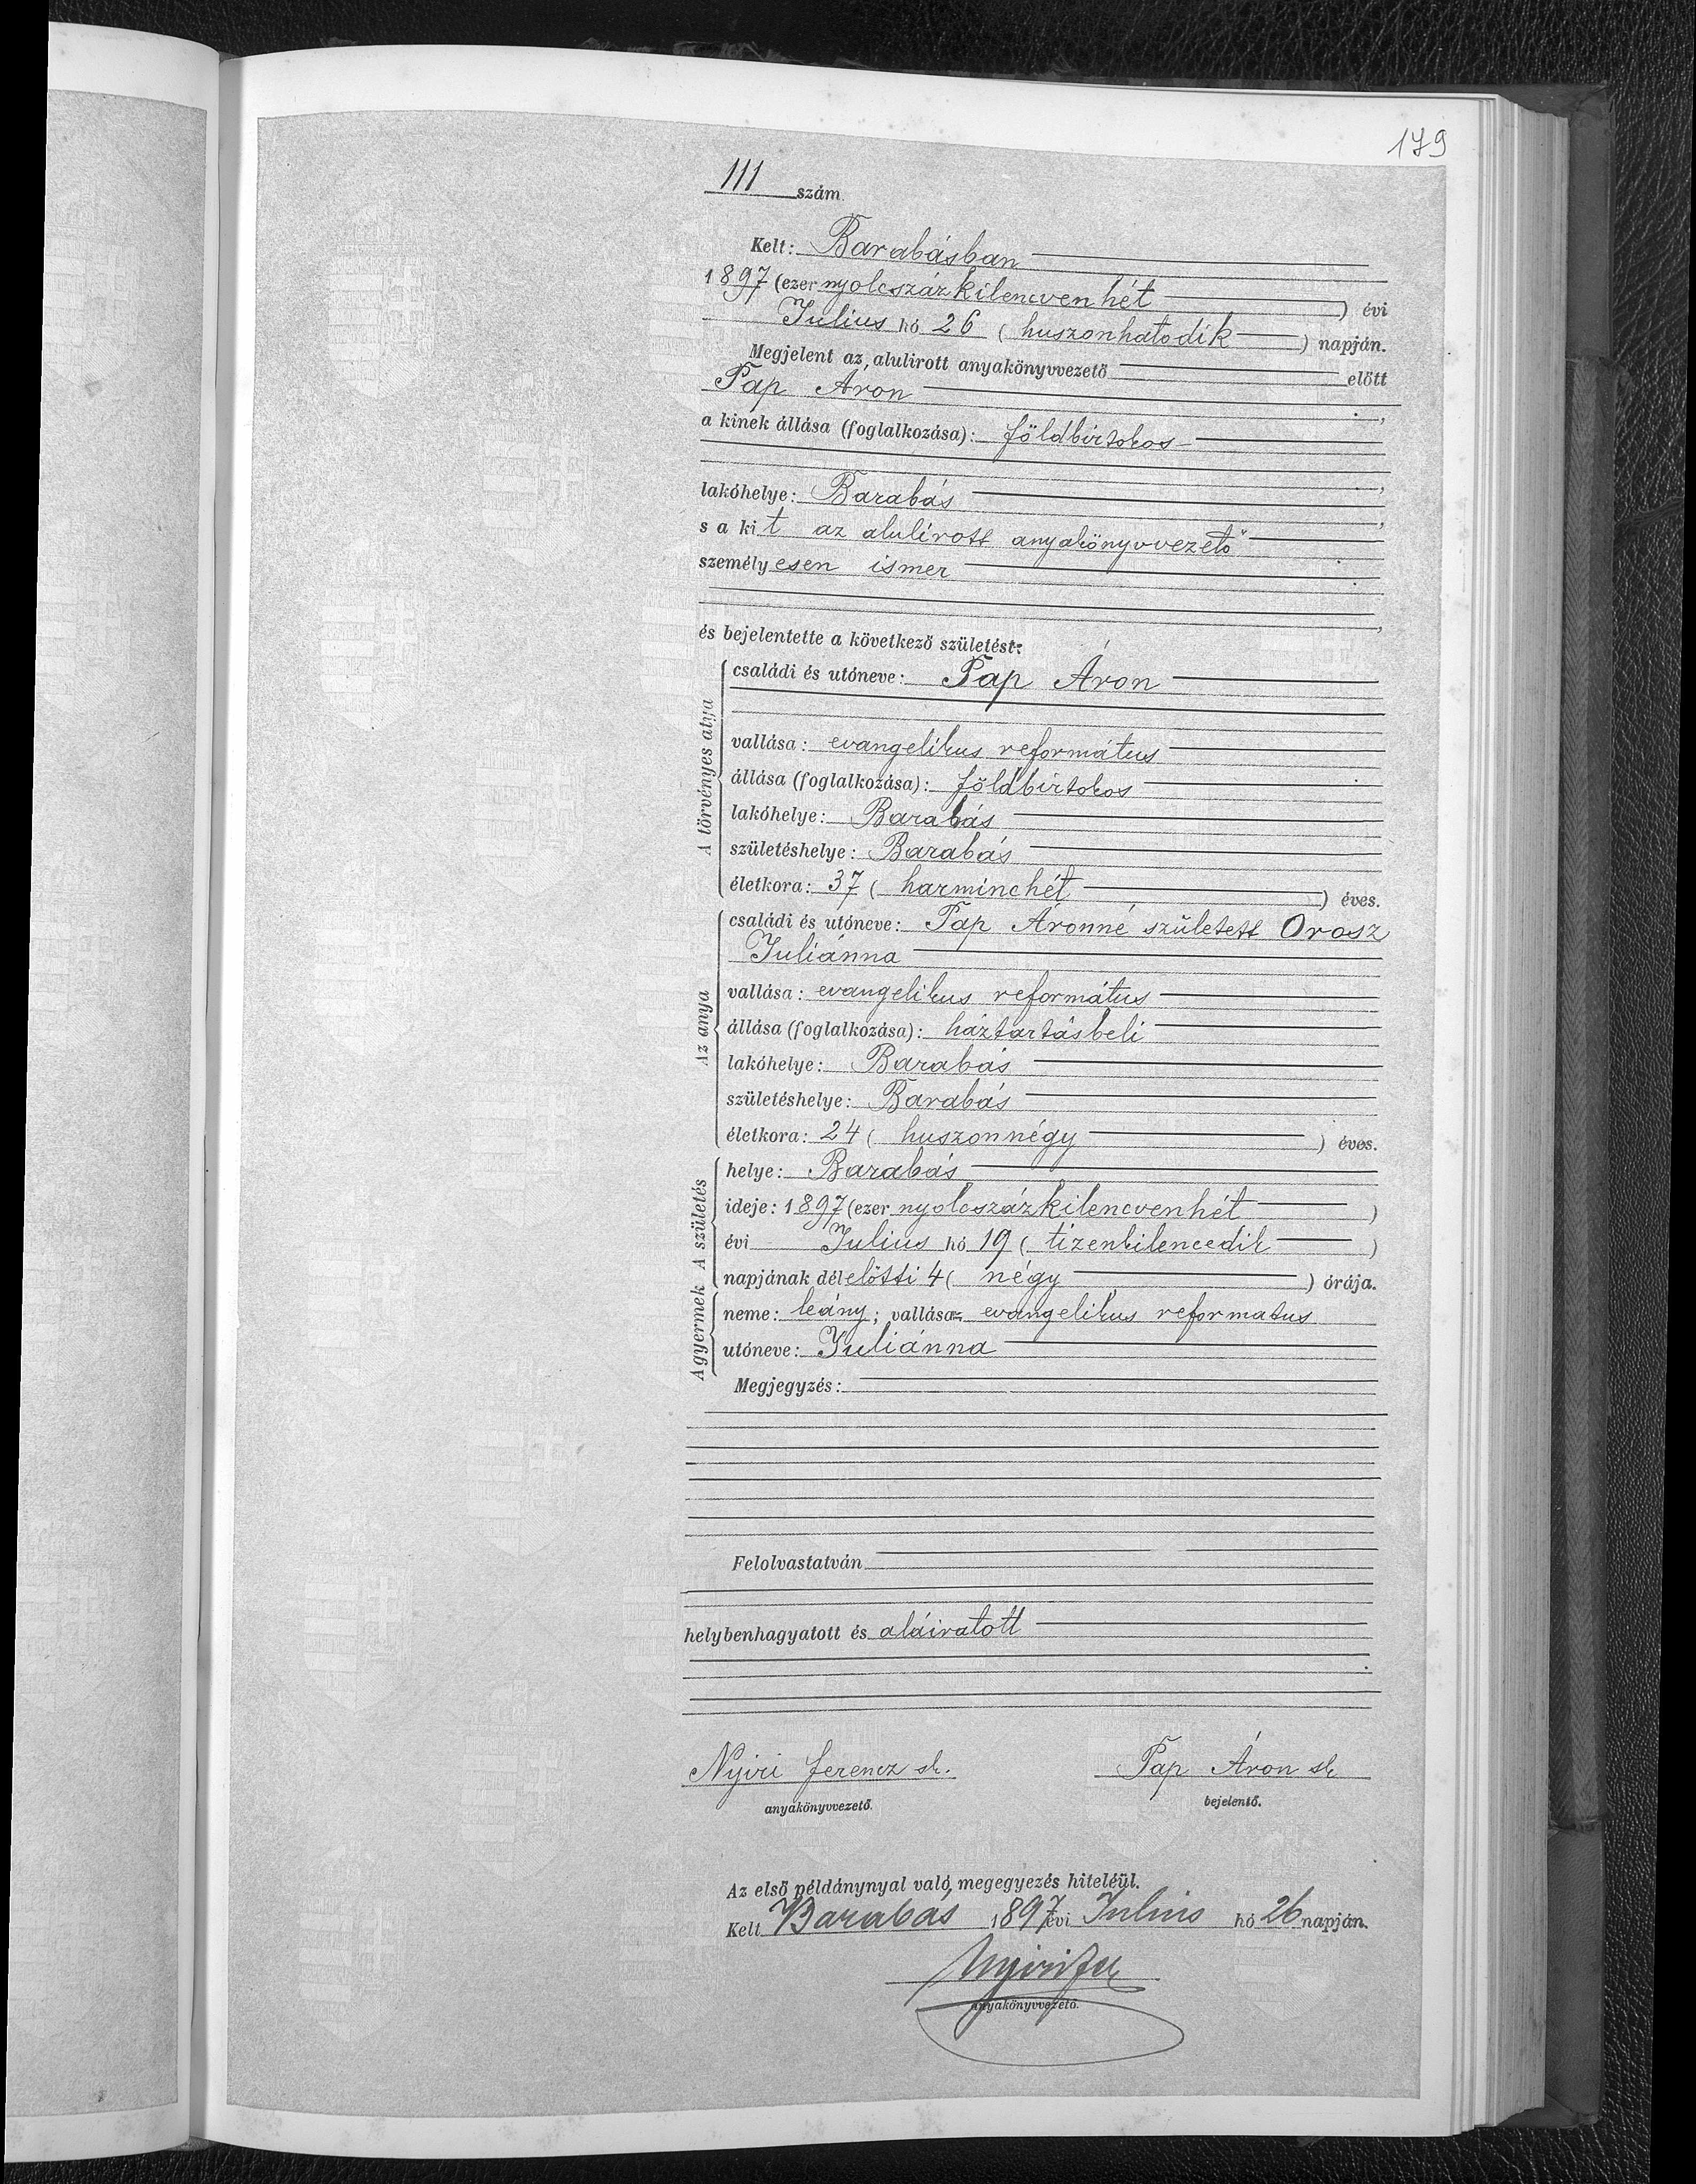 179
111 szám.
Kelt: Barabásban
1897 (ezer nyolcszázkilencvenhét) évi
Julius hó 26 (huszonhatodik) napján.
Megjelent az alulirott anyakönyvvezető előtt
Pap Áron,
a kinek állása (foglalkozása): földbirtokos
lakóhelye: Barabás,
s a kit az alulirott anyakönyvvezető
személyesen ismer
és bejelentette a következő születést:
A törvényes atya
családi és utóneve: Pap Áron
vallása: evangelikus református
állása (foglalkozása): földbirtokos
lakóhelye: Barabás
születéshelye: Barabás
életkora: 37 (harminchét) éves.
Az anya
családi és utóneve: Pap Áronné született Orosz
Juliánna
vallása: evangelikus református
állása (foglalkozása): háztartásbeli
lakóhelye: Barabás
születéshelye: Barabás
életkora: 24 (huszonnégy) éves.
A születés
helye: Barabás
ideje: 1897 (ezer nyolcszázkilencvenhét)
évi Julius hó 19 (tizenkilencedik)
napjának délelőtti 4 (négy) órája.
A gyermek
neme: leány; vallása: evangelikus reformatus
utóneve: Juliánna
Megjegyzés:
Felolvastatván
helybenhagyatott és aláiratott
Nyiri Ferencz sk. Pap Áron sk
anyakönyvvezető. bejelentő.
Az első példánynyal való megegyezés hiteléül.
Kelt Barabas 1897 évi Julius hó 26 napján.
Nyiri Fer
anyakönyvvezető.